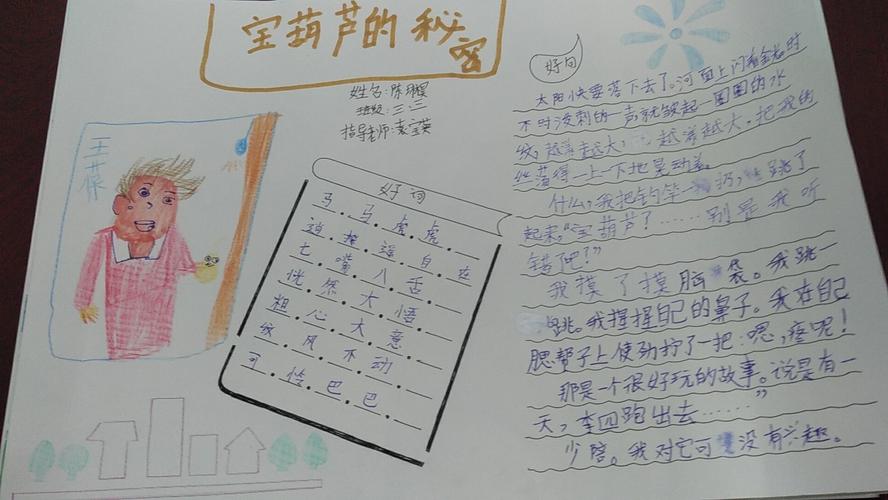 宝葫芦的秘密
姓名:陈
班级:三.三
指导老师:袁宝英
王葆
好词
马马虎虎
逍遥自在
七嘴八舌
恍然大悟
粗心大意
纹风不动
可怜巴巴
好句
太阳快要落下去了。河面上闪着金光。时
不时泼剌的一声就皱起一圈圈的水
纹,越来越大,越来越大,把我的
丝荡得一上一下地晃动着。
什么,我把钓竿一扔,跳了
起来。“宝葫芦?……别是我听
错吧?”
我摸了摸脑袋。我跳一
跳。我捏捏自己的鼻子。我在自己
腮帮子上使劲拧了一把:嗯,疼呢!
那是一个很好玩的故事。说是有一
天,李四跑出去……”
少陪。我对它可没有兴趣。